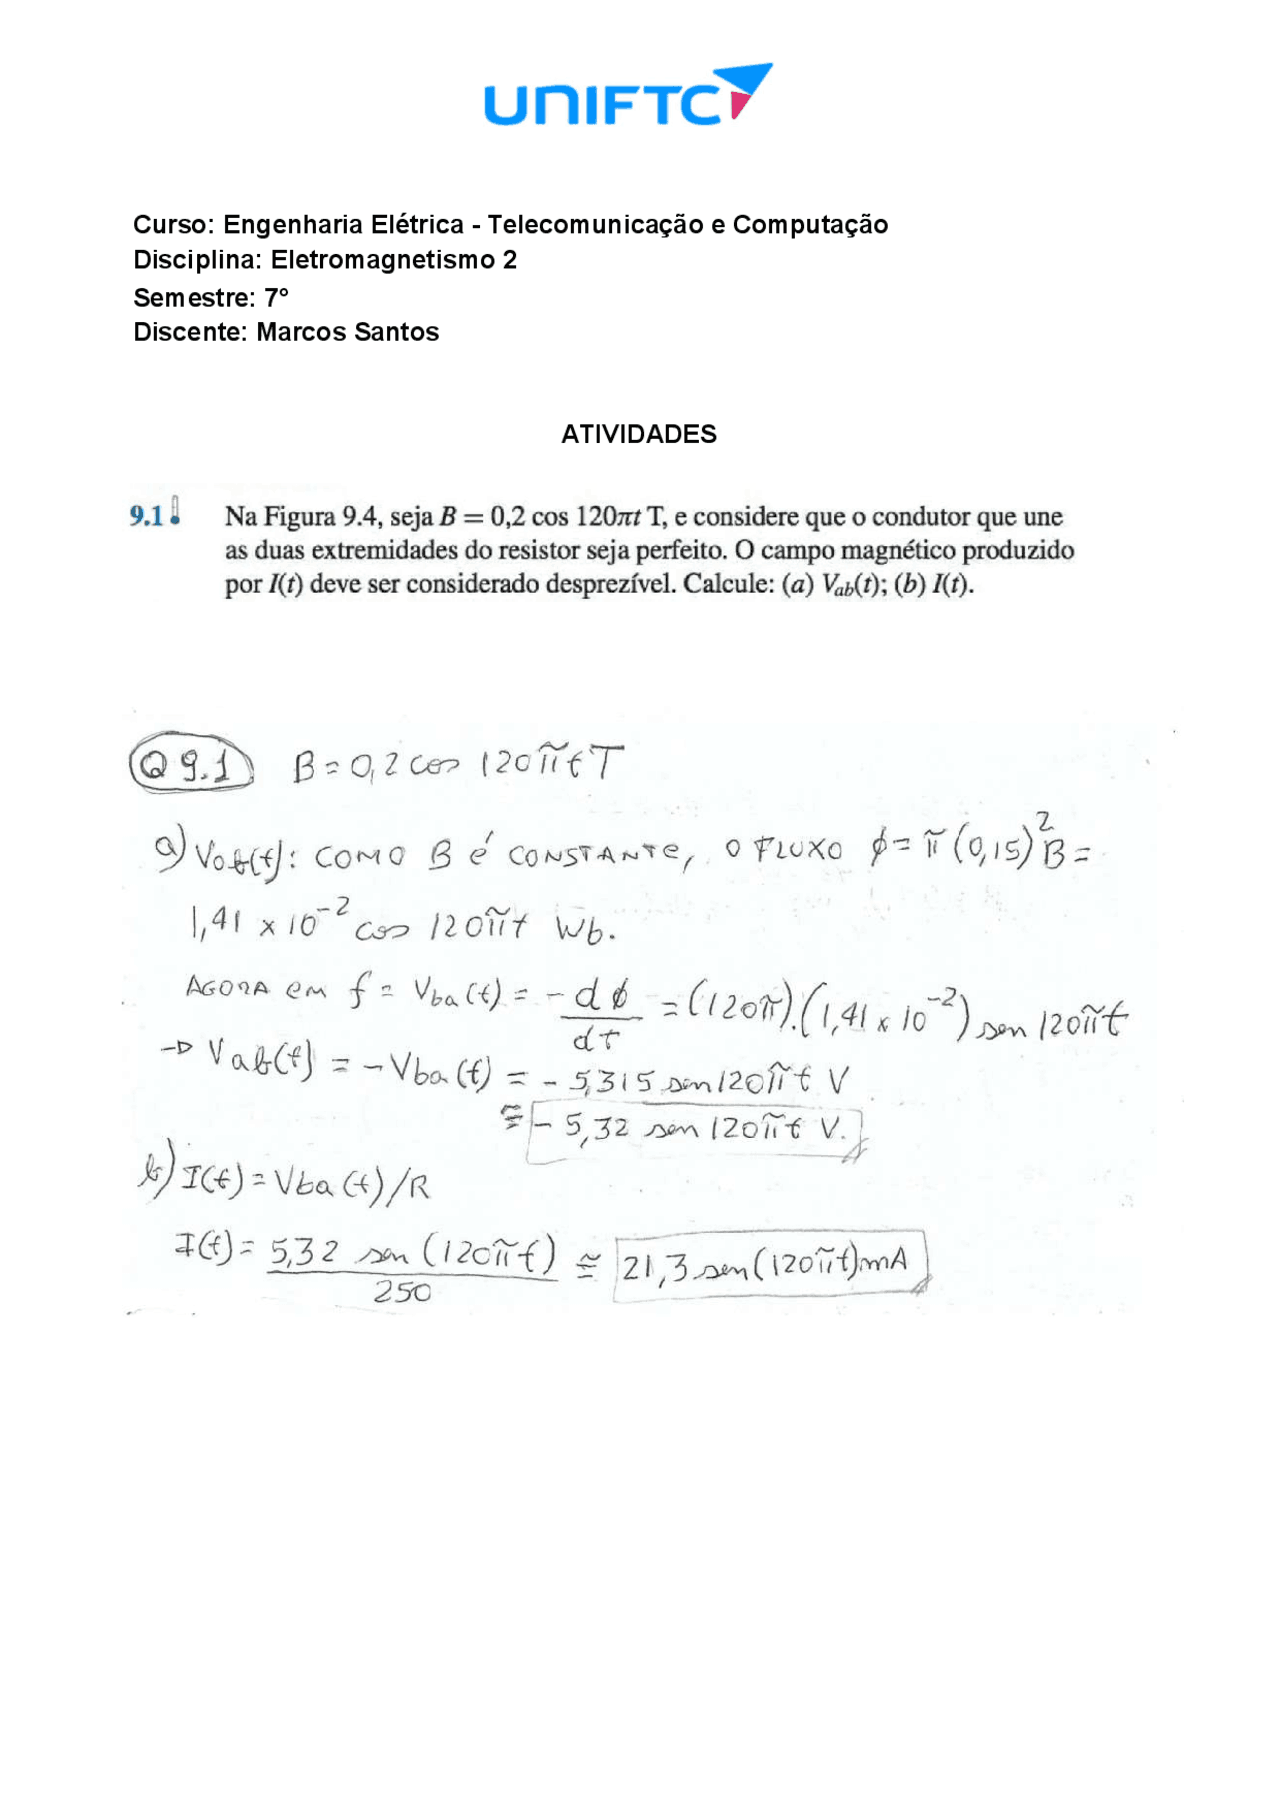 UNIFTC
Curso: Engenharia Elétrica - Telecomunicação e Computação
Disciplina: Eletromagnetismo 2
Semestre: 7°
Discente: Marcos Santos
ATIVIDADES
9.1 Na Figura 9.4, seja B = 0,2 cos 120πt T, e considere que o condutor que une
as duas extremidades do resistor seja perfeito. O campo magnético produzido
por I(t) deve ser considerado desprezível. Calcule: (a) Vab(t); (b) I(t).
Q 9.1 B = 0,2 cos 120πt T
a) Vab(t): COMO B é CONSTANTE, O FLUXO ϕ = π (0,15)² B =
1,41 x 10⁻² cos 120πt Wb.
AGORA em f = Vba(t) = - dϕ/dt = (120π).(1,41 x 10⁻²) sen 120πt
→ Vab(t) = - Vba(t) = - 5,315 sen 120πt V
≅ - 5,32 sen 120πt V.
b) I(t) = Vba(t)/R
I(t) = 5,32 sen (120πt) / 250 ≅ 21,3 sen (120πt) mA